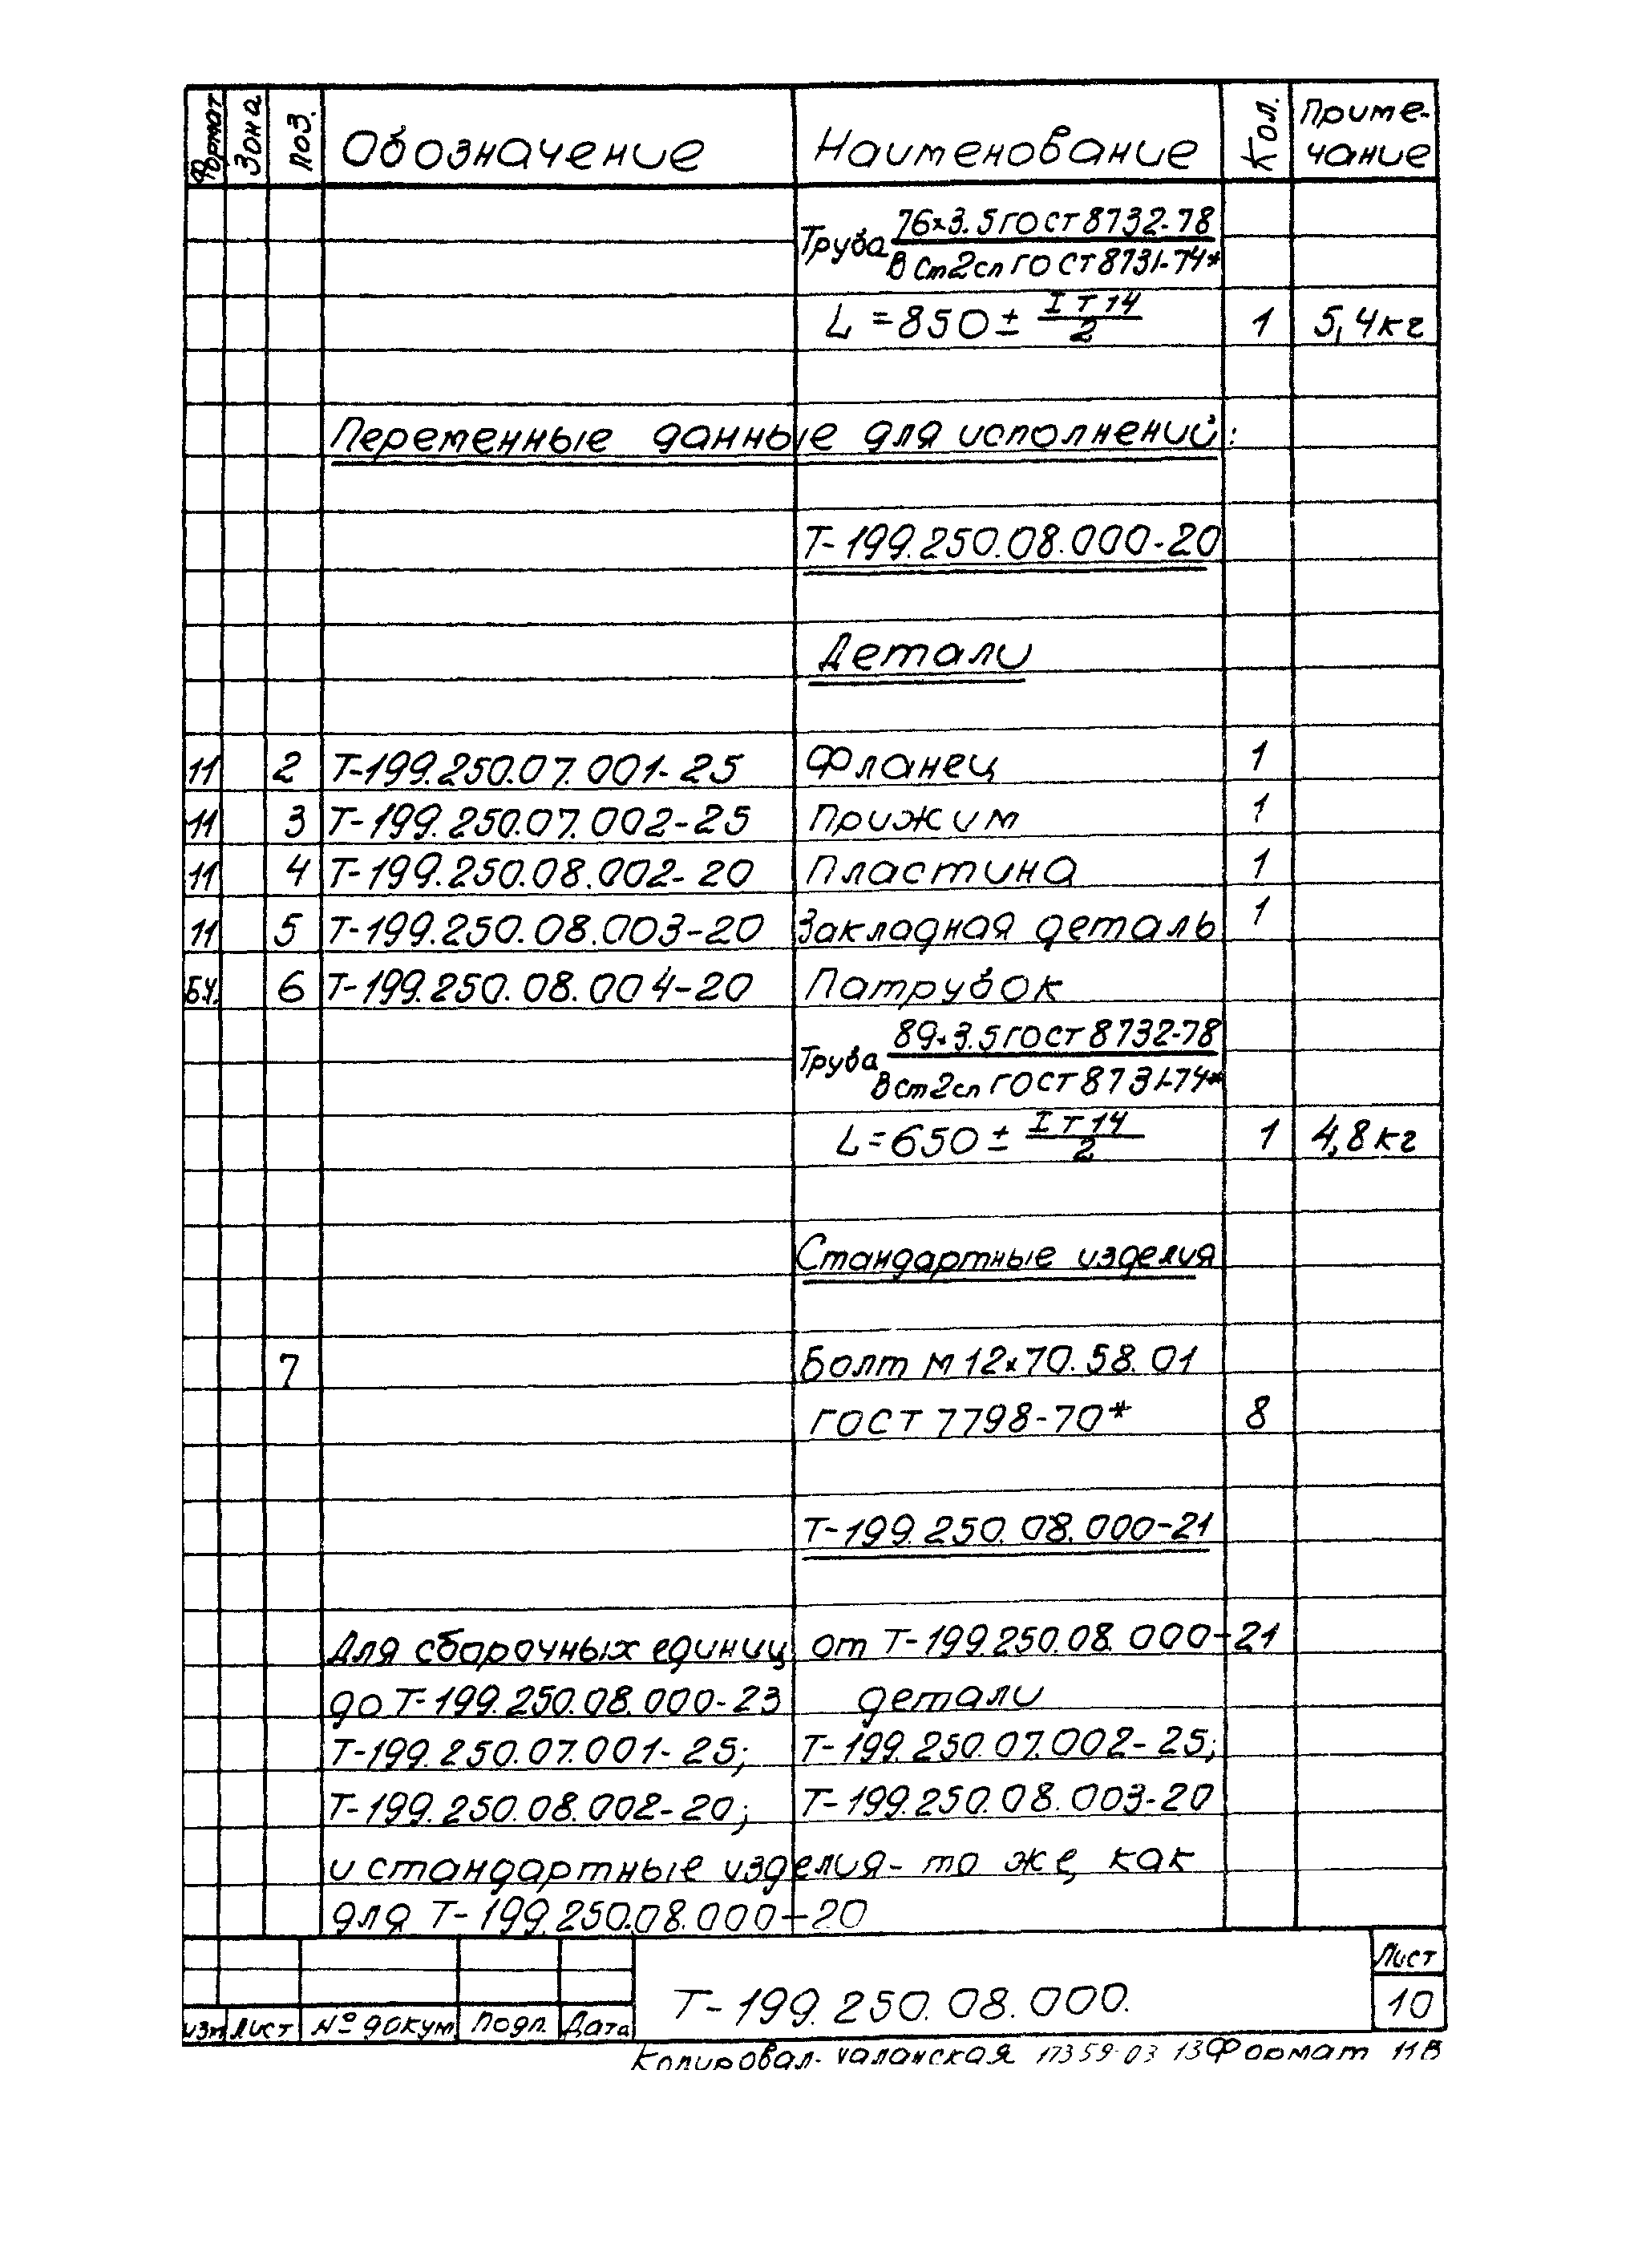 Формат Зона Поз. Обозначение Наименование Кол. Приме-
чание
Труба 76×3.5 ГОСТ 8732-78
В Ст2сп ГОСТ 8731-74*
L = 850 ± IT14/2 1 5,4 кг
Переменные данные для исполнений:
Т-199.250.08.000-20
Детали
11 2 Т-199.250.07.001-25 Фланец 1
11 3 Т-199.250.07.002-25 Прижим 1
11 4 Т-199.250.08.002-20 Пластина 1
11 5 Т-199.250.08.003-20 Закладная деталь 1
БЧ. 6 Т-199.250.08.004-20 Патрубок
Труба 89×3.5 ГОСТ 8732-78
В Ст2сп ГОСТ 8731-74*
L = 650 ± IT14/2 1 4,8 кг
Стандартные изделия
7 Болт М12×70.58.01
ГОСТ 7798-70* 8
Т-199.250.08.000-21
Для сборочных единиц от Т-199.250.08.000-21
до Т-199.250.08.000-23 детали
Т-199.250.07.001-25; Т-199.250.07.002-25;
Т-199.250.08.002-20; Т-199.250.08.003-20
и стандартные изделия - то же, как
для Т-199.250.08.000-20
Т-199.250.08.000.
Лист
10
Изм Лист № докум Подп. Дата
Копировал- 17359-03 13 Формат 11В